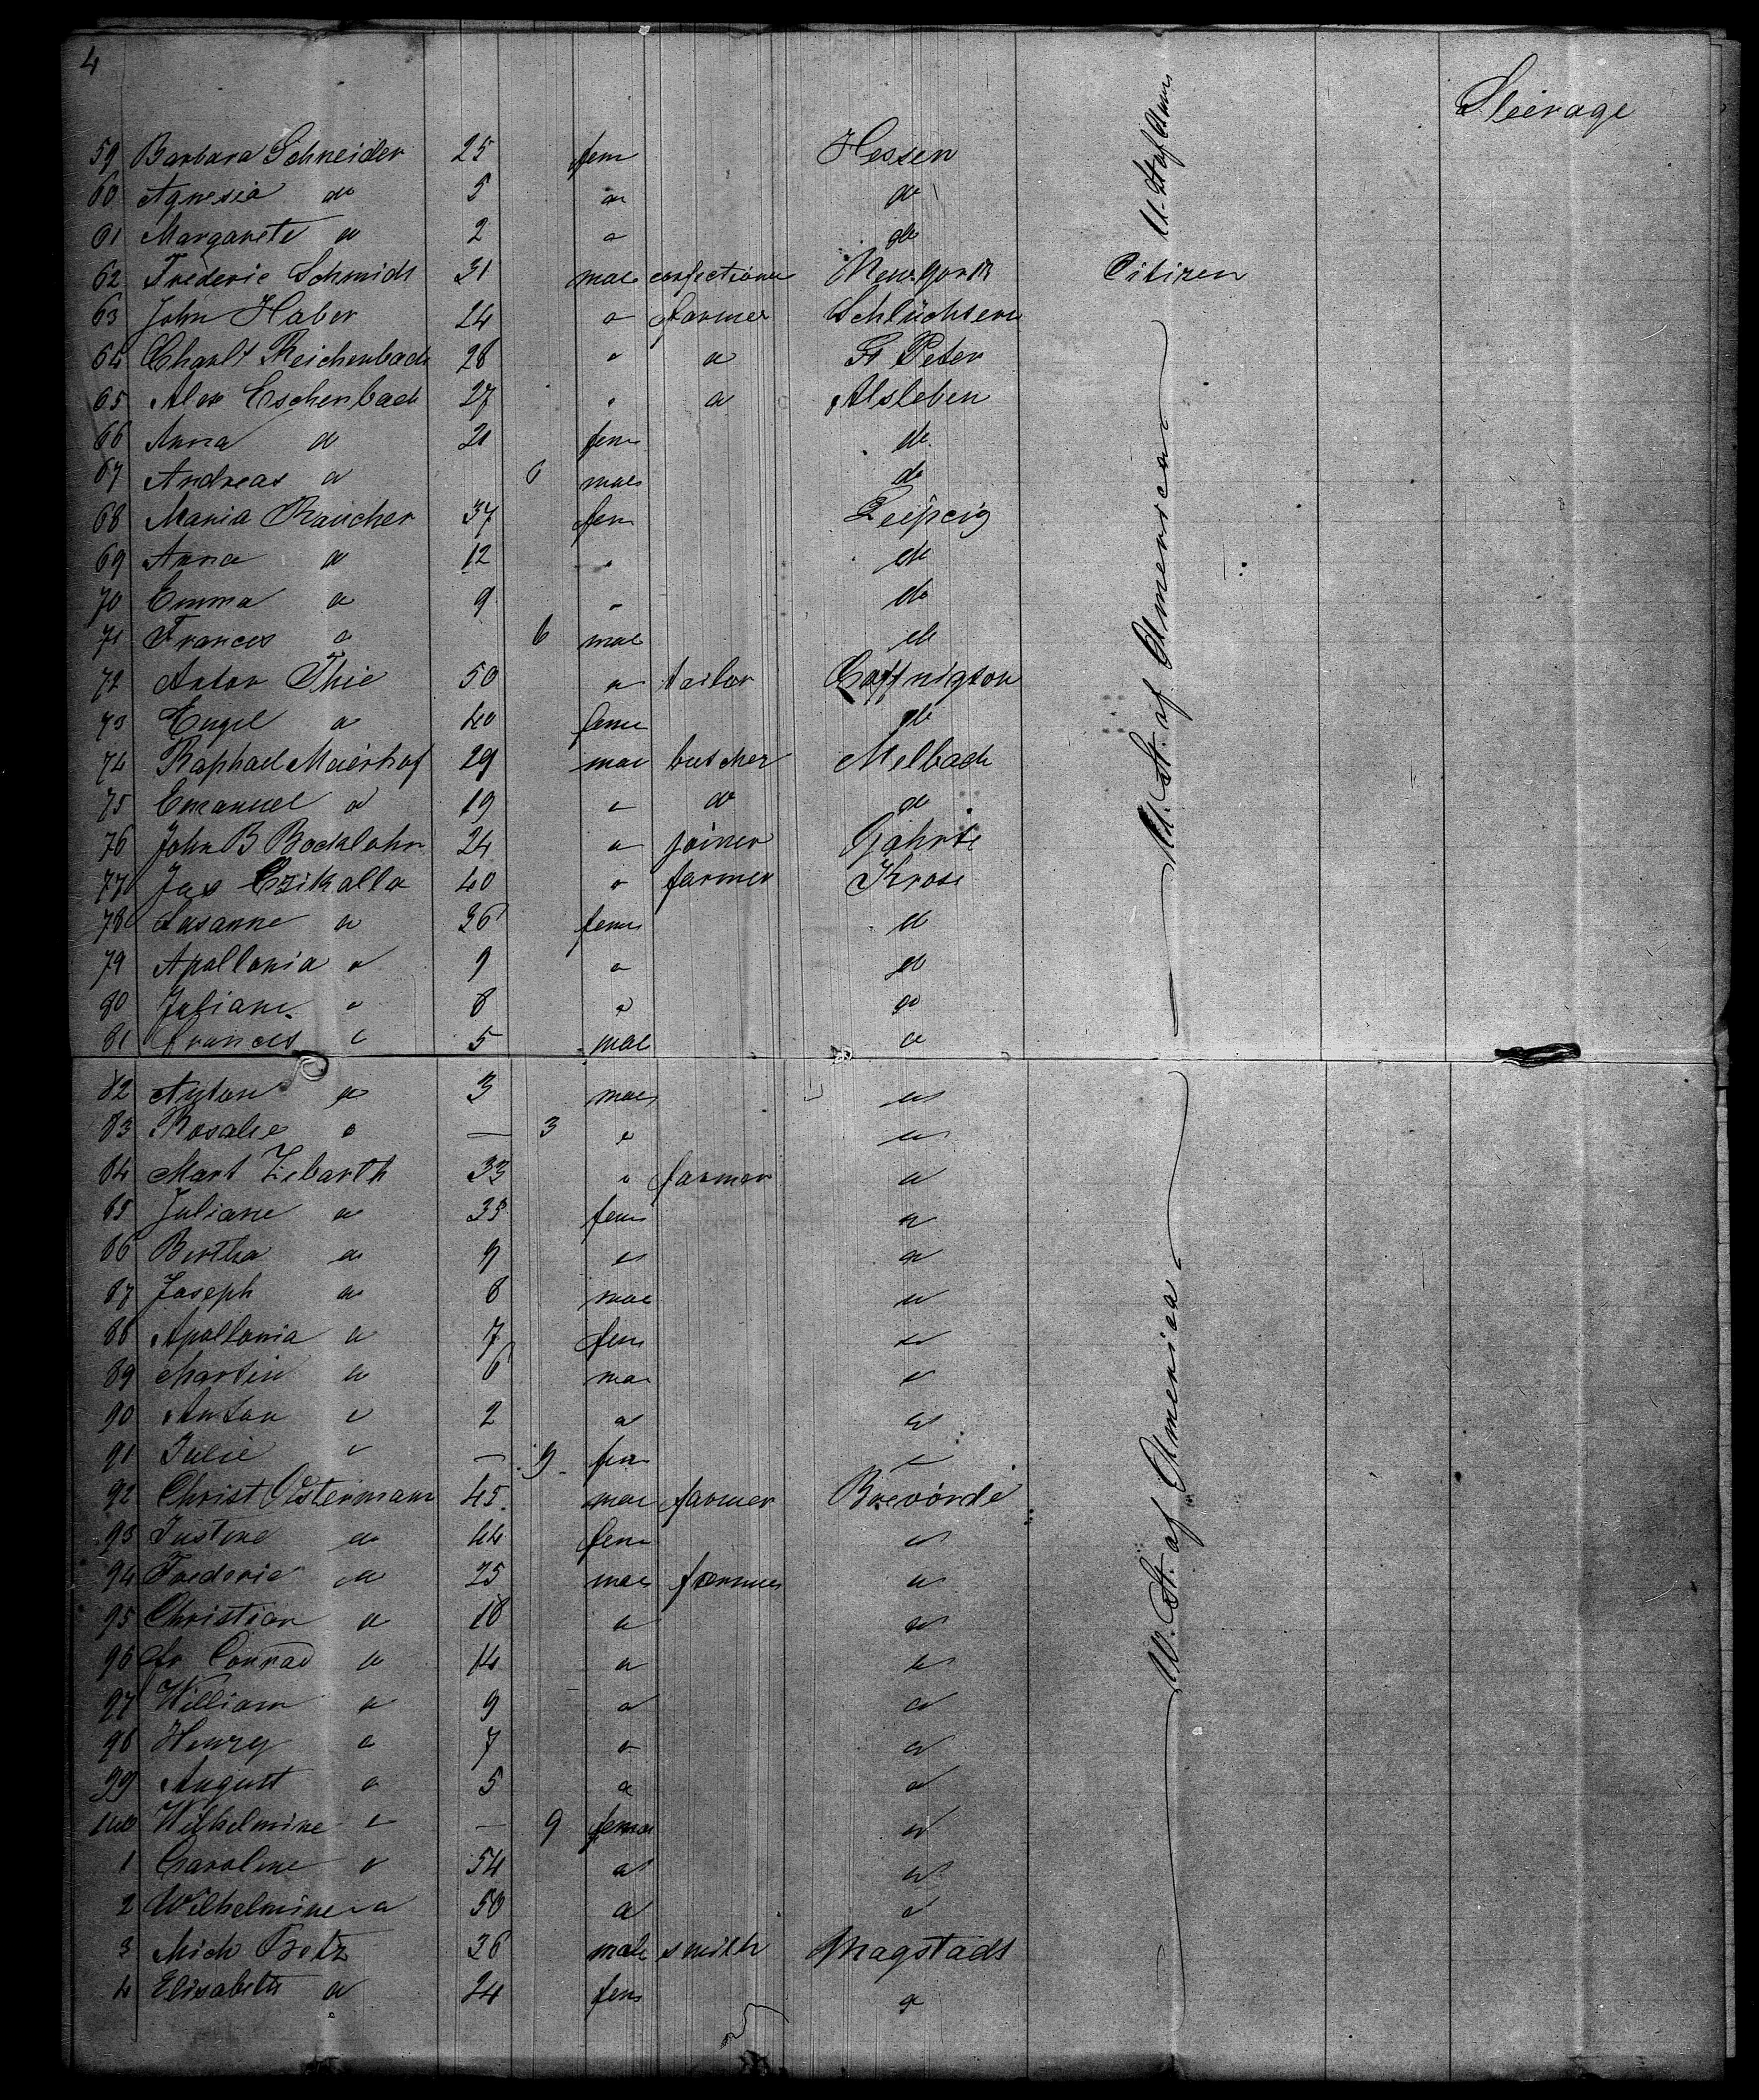 4
Steerage
59 Barbara Schneider 25 fem Hessen
60 Agnesia do 5 do do
61 Margarete do 2 do do
U. St of Amer
62 Frederic Schmidt 31 mal confectioner New-york Citizen
63 John Haber 24 do farmer Schlüchsern
64 Charlt Reichenbach 28 " do St Peter
65 Alex Eschenbach 27 " do Alsleben
66 Anna do 21 fem do
67 Andreas do 6 male do
68 Maria Raucher 37 fem Leipzig
69 Anna do 12 " do
70 Emma do 9 " do
71 Frances do 6 mal do
72 Anton Thie 50 do tailor Coffnigton
73 Engel do 40 fem do
74 Raphael Maierhof 29 mal butcher Melbach
75 Emanuel do 19 do do do
76 John B Bocklohn 24 do joiner Gahrte
77 Jas Czikalla 40 do farmer Krose
78 Susanne do 36 fem do
79 Apollonia do 9 do do
80 Juliane do 8 do do
81 Frances do 5 mal do
U. St. of America
82 Anton do 3 mal do
83 Rosalie do — 3 do do
84 Mart Ziebarth 33 do farmer do
85 Juliane do 35 fem do
86 Bertha do 9 do do
87 Joseph do 8 mal do
88 Apollonia do 7 fem do
89 Martin do 6 mal do
90 Anton do 2 do do
91 Julie do — 9 fem do
92 Christ Ostermann 45 mal farmer Brevörde
93 Justine do 44 fem do
94 Frederic do 25 mal farmer do
95 Christian do 18 do do
96 Fr Conrad do 14 do do
97 William do 9 do do
98 Henry do 7 do do
99 August do 5 do do
100 Wilhelmine do — 9 fem do
1 Caroline do 54 do do
2 Wilhelmine do 50 do do
3 Mich Betz 36 male smith Magstadt
4 Elisabeth do 24 fem do
U. St. of America